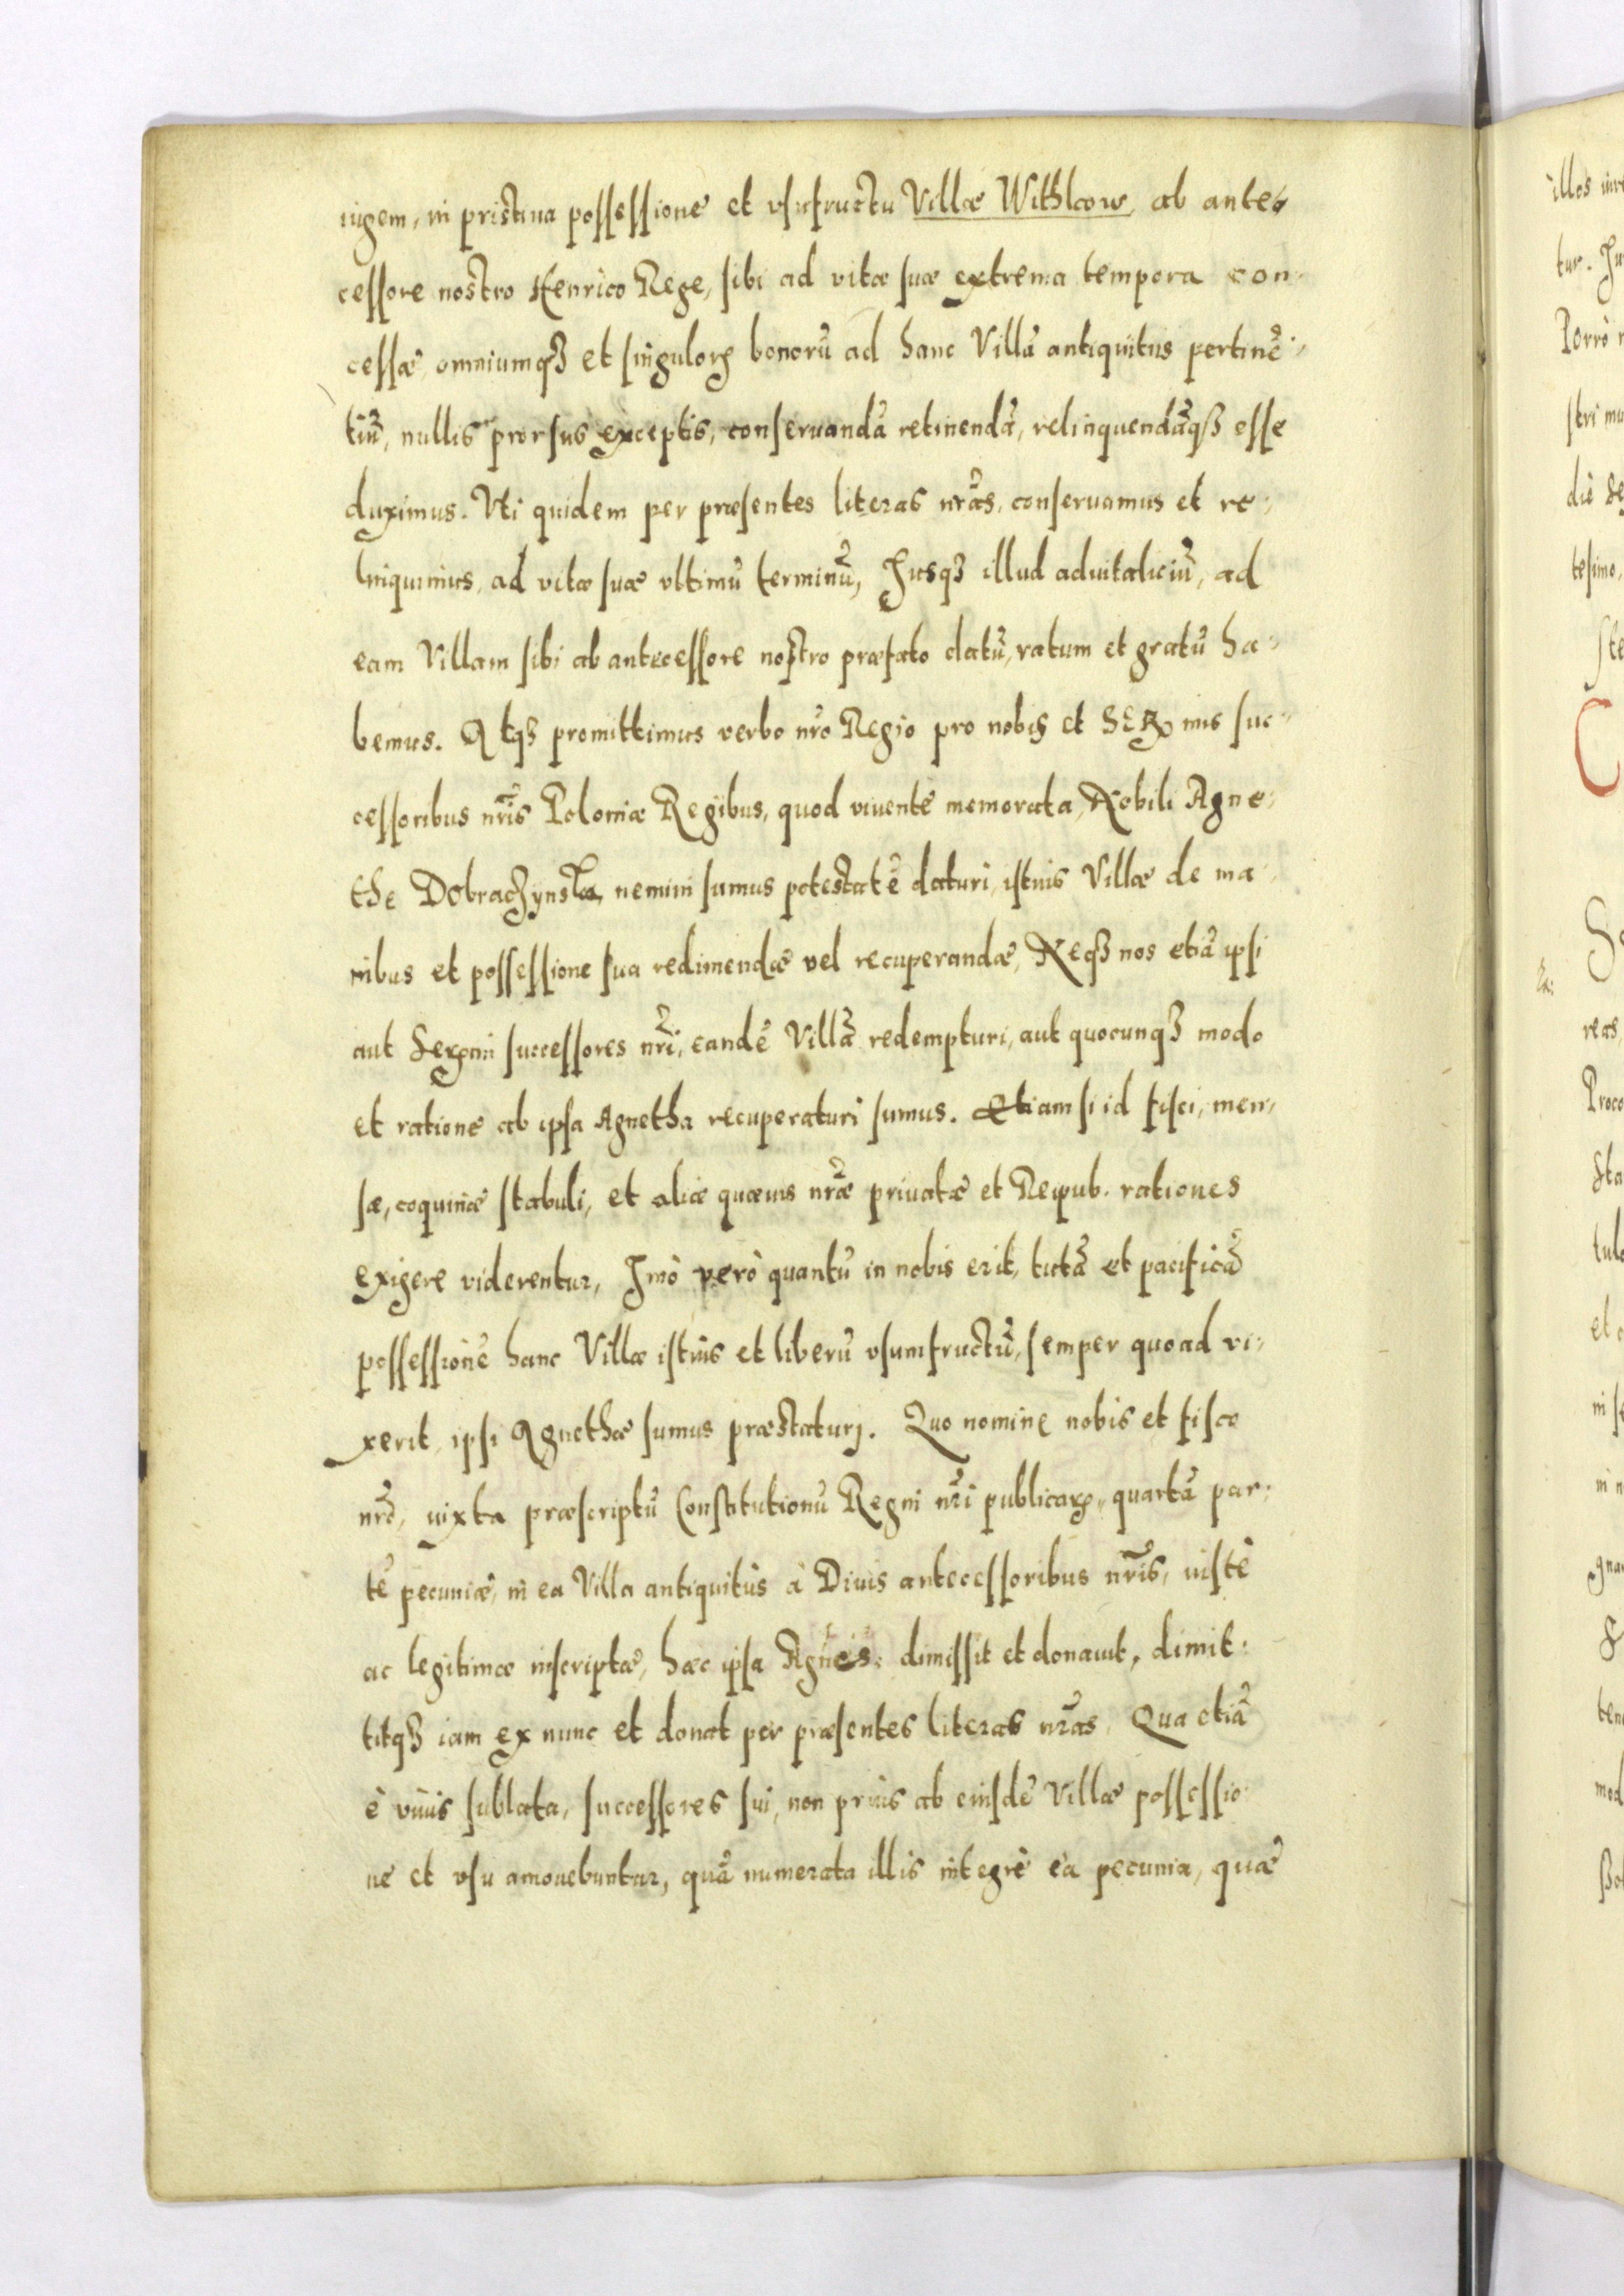 iugem, in pristina possessione et vsufructu Villæ Withkow, ab ante,
cessore nostro Henrico Rege, sibi ad vitæ suæ extrema tempora con,
cessæ, omniumqꝫ et singuloꝝ bonorũ ad hanc Villã antiquitus pertinẽ,
tiũ, nullis prorsus exceptis, conseruandã retinendã, relinquendãqꝫ esse
duximus. Vti quidem per præsentes literas nr̃as, conseruamus et re,
linquimus, ad vitæ suæ vltimũ terminũ, Jusqꝫ illud aduitaliciũ, ad
eam Villam sibi ab antecessore nostro præfato datũ, ratum et gratũ ha,
bemus. Atqꝫ promittimus verbo nr̃o Regio pro nobis et SERꝫmis suc,
cessoribus nr̃is Poloniæ Regibus, quod viuente memorata, Nobili Agne,
the Dobraczynska, nemini sumus potestatẽ daturi, istius Villæ de ma,
nibus et possessione sua redimendæ vel recuperandæ, Neqꝫ nos etiã ipsi
aut Serꝫmi successores nr̃i, eandẽ Villã redempturi, aut quocunqꝫ modo
et ratione ab ipsa Agnetha recuperaturi sumus. Etiam si id fisci, men,
sæ, coquinæ stabuli, et aliæ quæuis nr̃æ priuatæ et Reipub. rationes
exigere viderentur, Jmò verò quantũ in nobis erit, tutã et pacificã
possessionẽ hanc Villæ istius et liberũ vsumfructũ, semper quoad vi,
xerit, ipsi Agnethæ sumus præstaturj. Quo nomine nobis et fisco
nr̃o, iuxta præscriptũ Constitutionũ Regni nr̃i publicaꝝ, quartã par,
tẽ pecuniæ, in ea Villa antiquitùs à Diuis antecessoribus nr̃is, iustè
ac legitimæ inscriptæ, hæc ipsa Agnes: dimissit et donauit, dimit,
titqꝫ iam ex nunc et donat per præsentes literas nr̃as. Qua etiã
è viuis sublata, successores sui, non priùs ab eiusdẽ Villæ possessio,
ne et vsu amouebuntur, quã numerata illis integrè ea pecunia, quæ